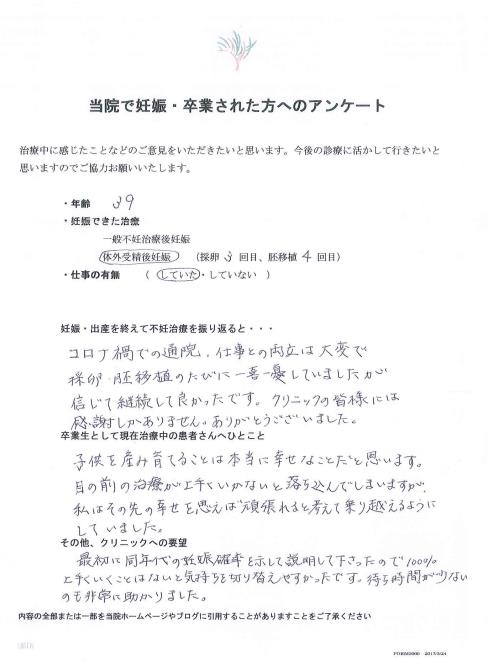 当院で妊娠・卒業された方へのアンケート
治療中に感じたことなどのご意見をいただきたいと思います。今後の診療に活かして行きたいと
思いますのでご協力お願いいたします。
・年齢 39
・妊娠できた治療
一般不妊治療後妊娠
体外受精後妊娠 (採卵 3 回目、胚移植 4 回目)
・仕事の有無 ( していた・していない )
妊娠・出産を終えて不妊治療を振り返ると・・・
コロナ禍での通院、仕事との両立は大変で
採卵・胚移植のたびに一喜一憂していましたが
信じて継続して良かったです。クリニックの皆様には
感謝しかありません。ありがとうございました。
卒業生として現在治療中の患者さんへひとこと
子供を産み育てることは本当に幸せなことだと思います。
目の前の治療が上手くいかないと落ち込んでしまいますが、
私はその先の幸せを思えば頑張れると考えて乗り越えるように
していました。
その他、クリニックへの要望
最初に同年代の妊娠確率を示して説明して下さったので100%
上手くいくことはないと気持ちを切り替えやすかったです。待ち時間が少ない
のも非常に助かりました。
内容の全部または一部を当院ホームページやブログに引用することがありますことをご了承ください